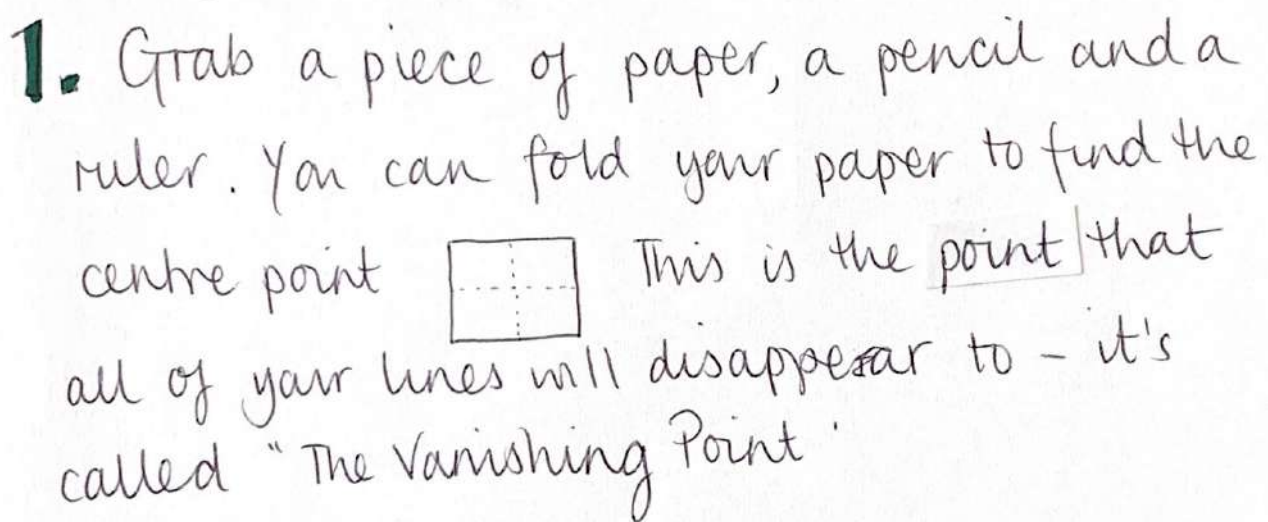 1. Grab a piece of paper, a pencil and a
ruler. You can fold your paper to find the
centre point This is the point that
all of your lines will disappear to - it's
called "The Vanishing Point"